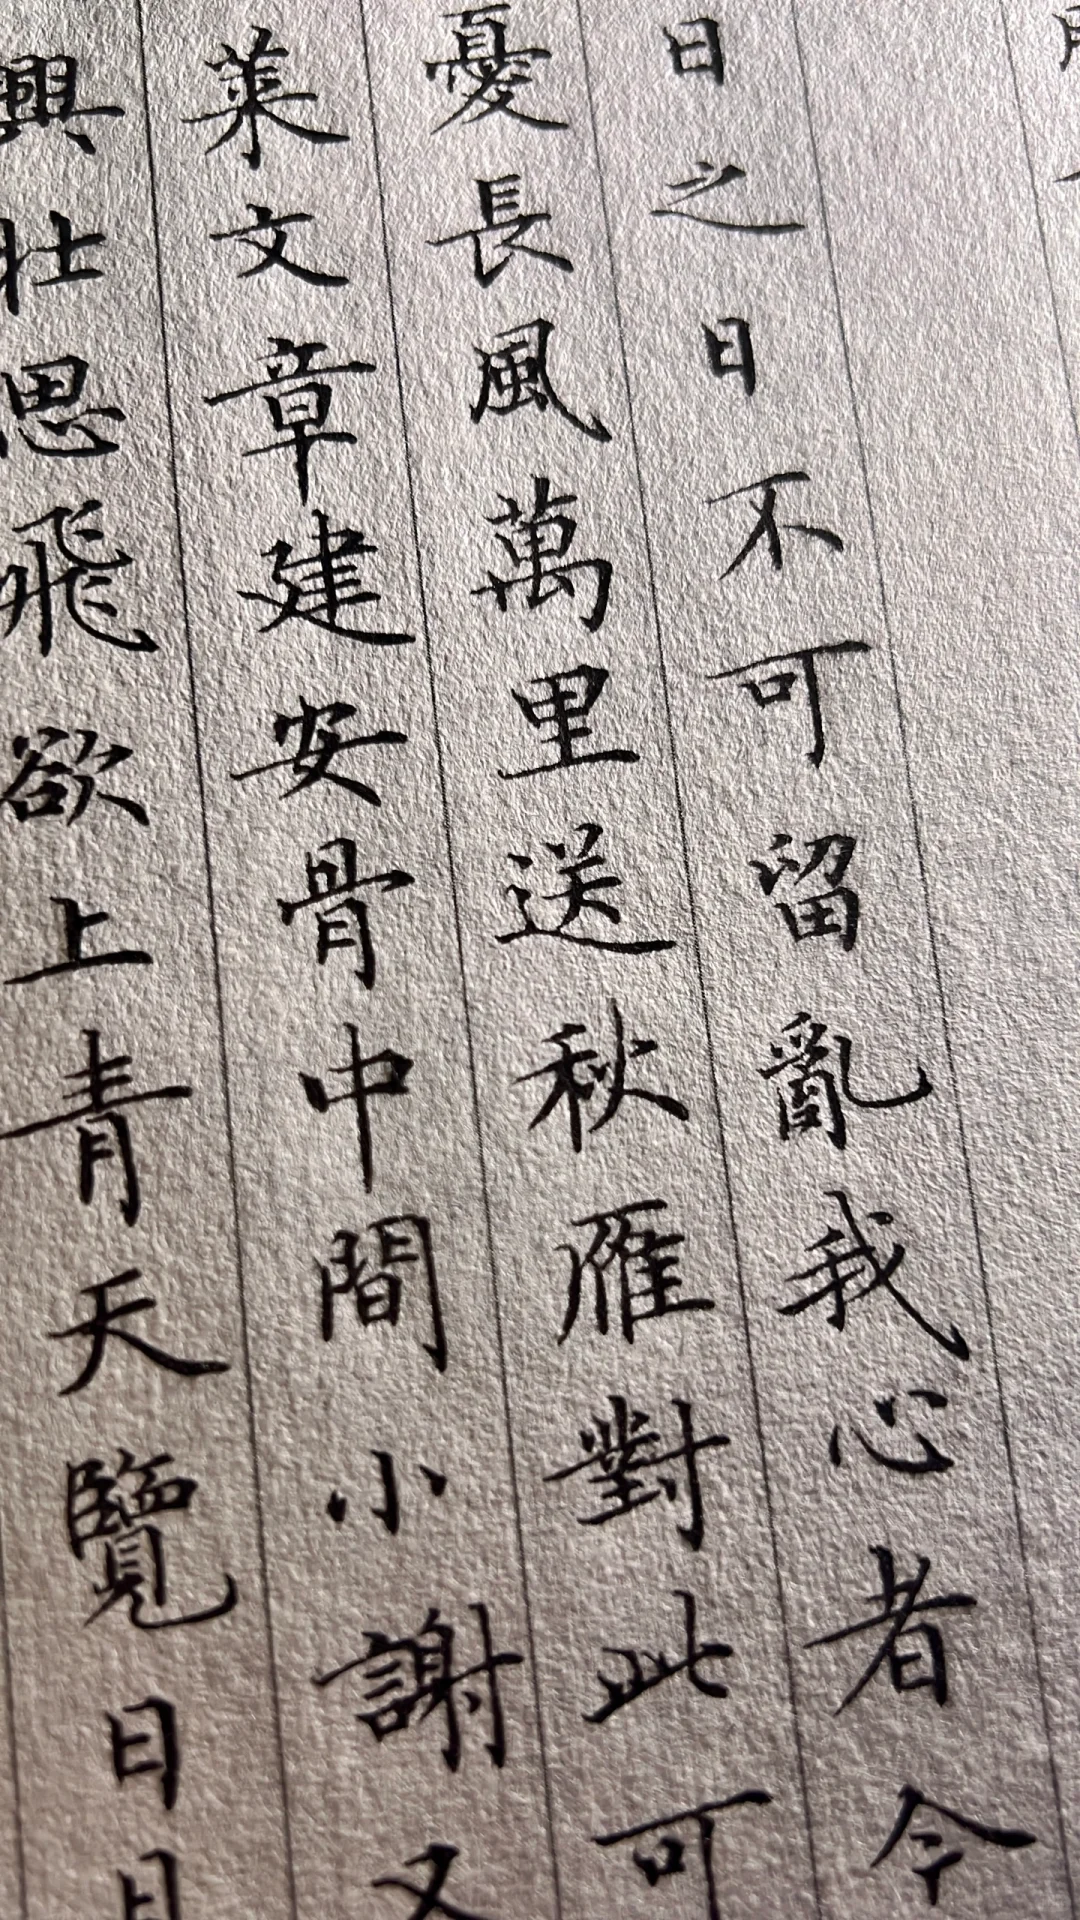 日之日不可留亂我心者今
憂長風萬里送秋雁對此可
萊文章建安骨中間小謝又
興壯思飛欲上青天覽日月